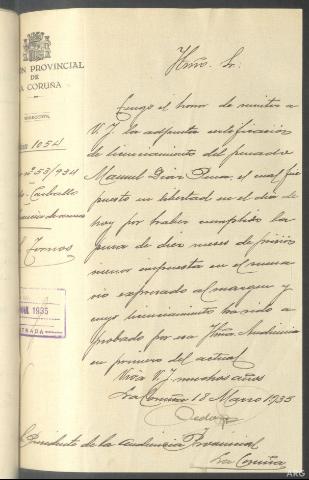 PROVINCIAL
DE
LA CORUÑA
DIRECCIÓN
1054
nº 53/934
Carballo
Tornos
MAR 1935
ENTRADA
Iltmo. Sr.
Tengo el honor de remitir a
V.I. la adjunta certificación
de licenciamiento del penado
Manuel Diaz, el cual fue
puesto en libertad en el día de
hoy por haber cumplido la
pena de diez meses de prisión
menor impuesta en el suma
rio expresado al margen y
cuyo licenciamiento ha sido a
probado por esa Iltma. Audiencia
en primero del actual
Viva V.I. muchos años
La Coruña 18 Marzo 1935
Presidente de la Audiencia Provincial
La Coruña
ARG